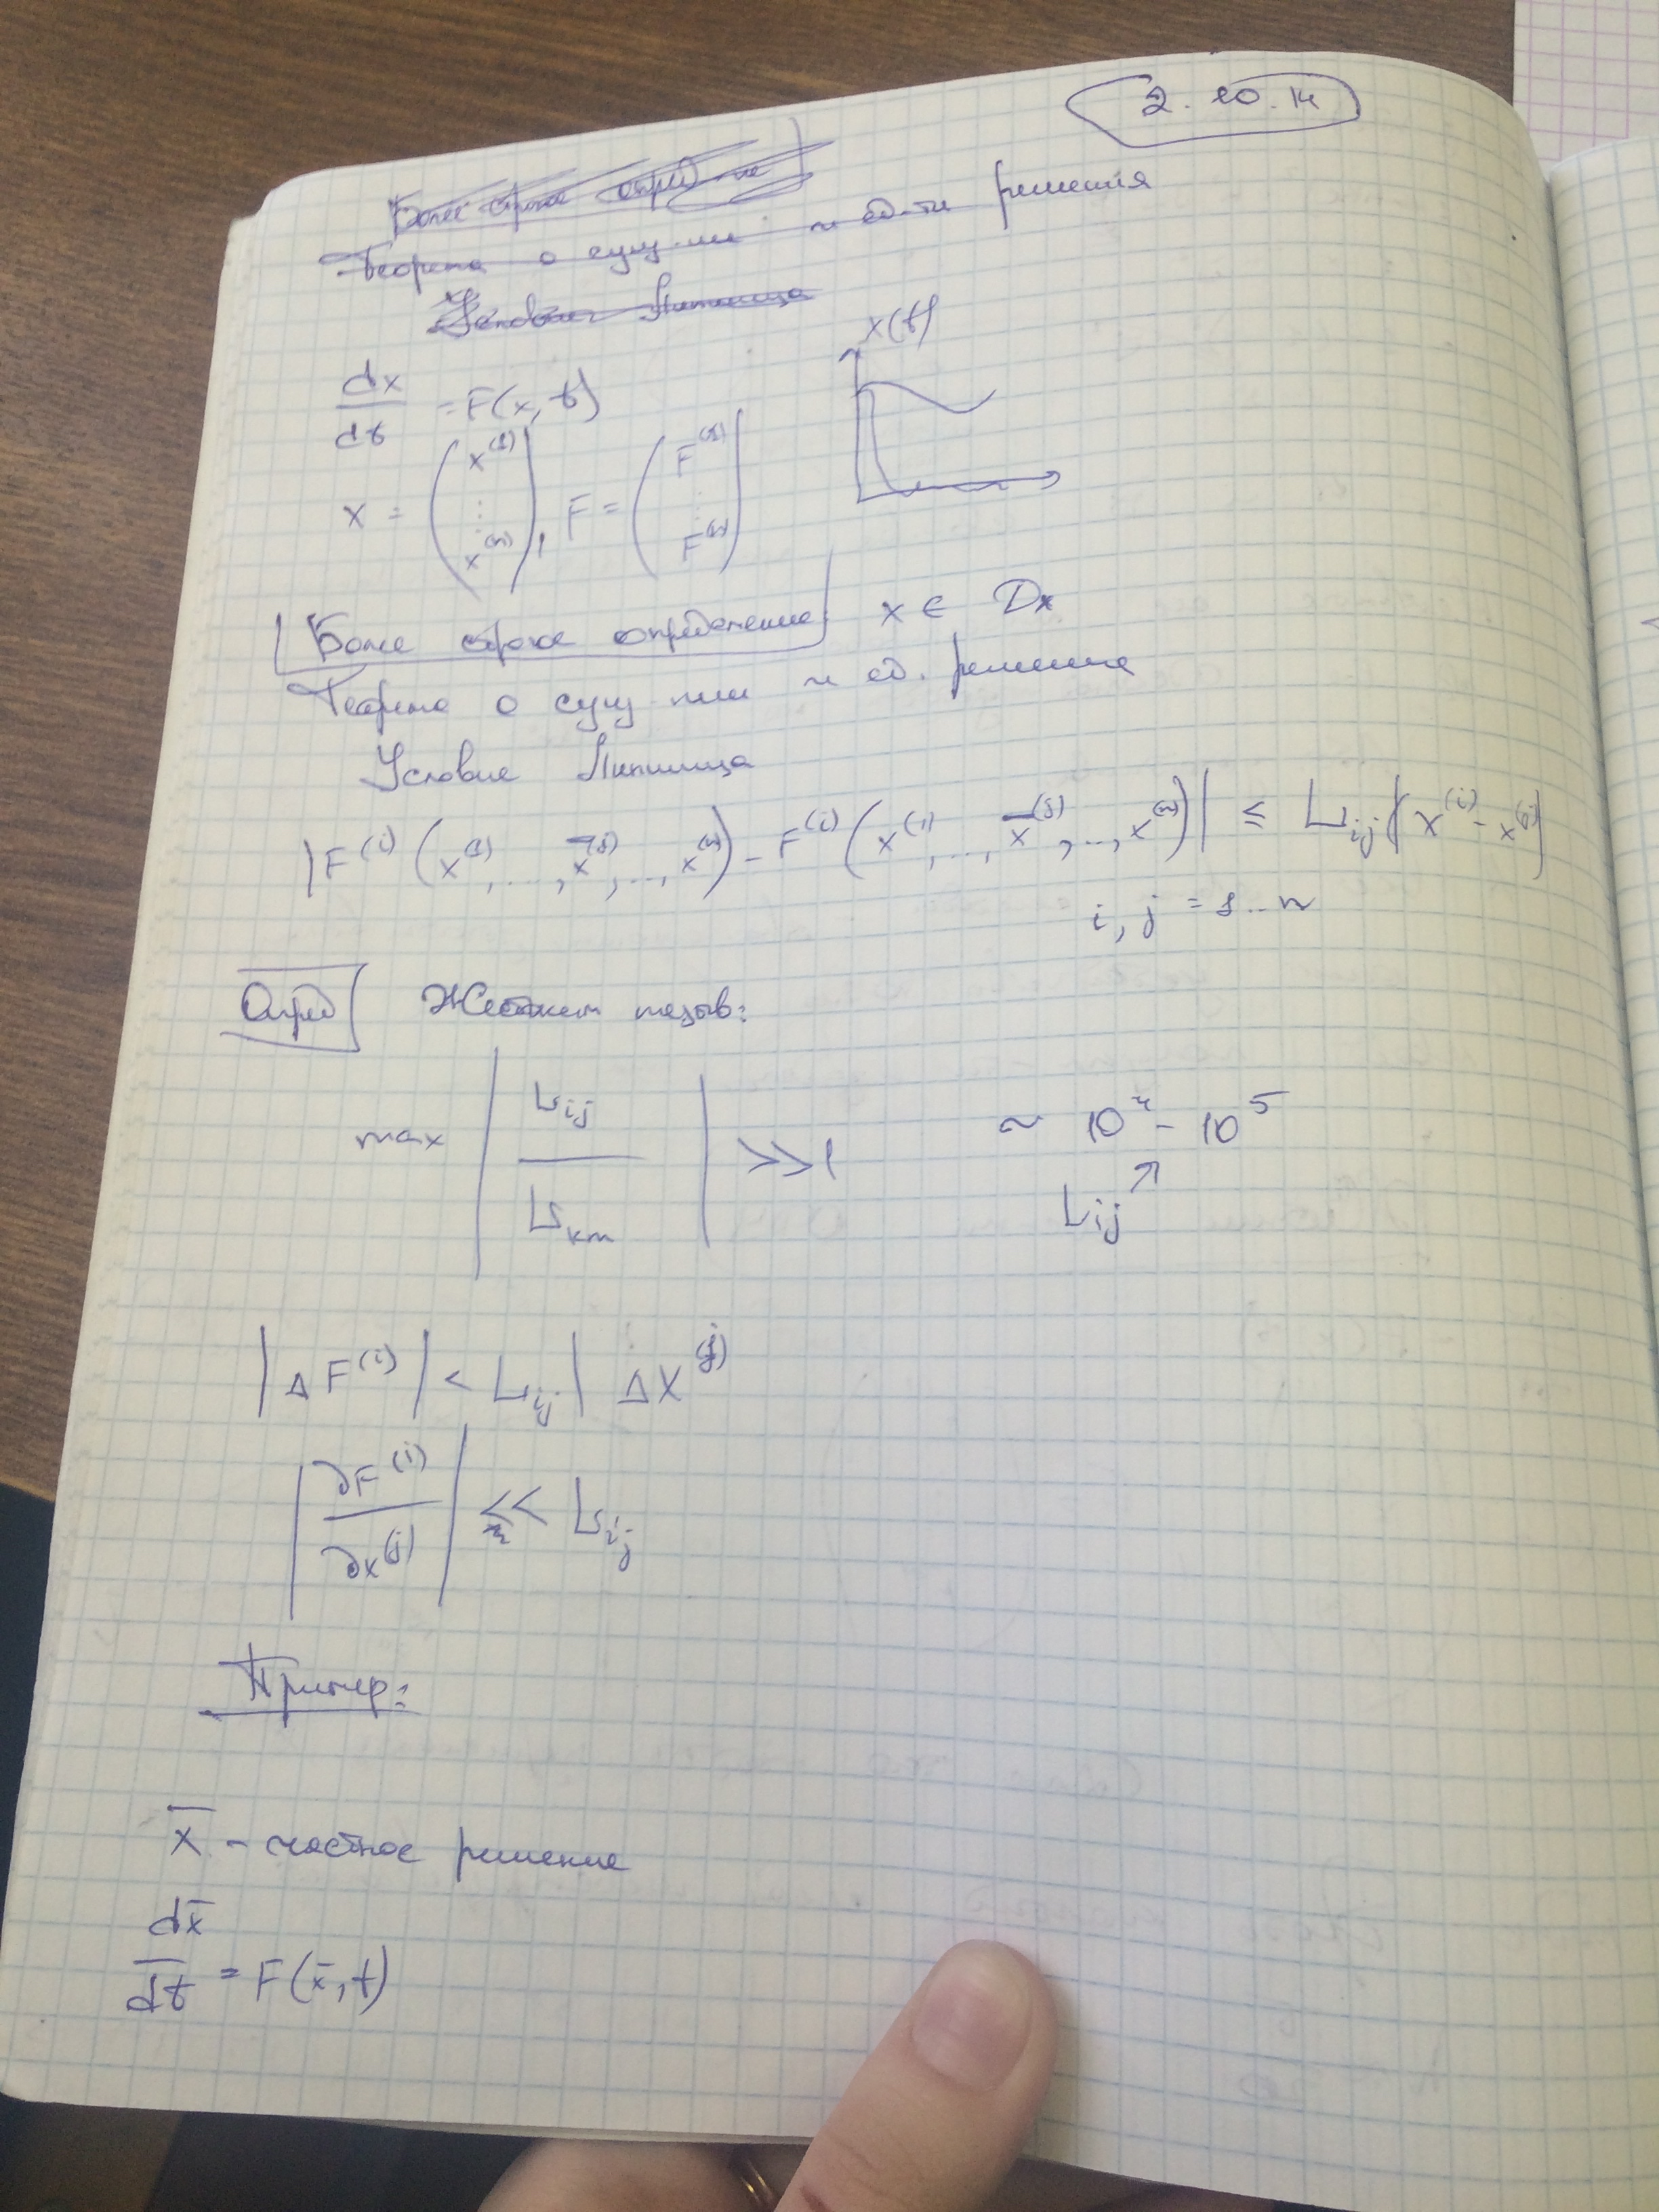 2.10.14
Более строгое опред-ие
Теорема о сущ-нии и ед-ти решения
Условие Липшица
dx/dt = F(x, t)
x(t)
x = (x^(1) ⋮ x^(n)), F = (F^(1) ⋮ F^(n))
Более строгое определение x ∈ Dx
Теорема о сущ нии и ед. решения
Условие Липшица
|F^(i) (x^(1), ..., x̄^(j), ..., x^(n)) - F^(i) (x^(1), ..., x̿^(j), ..., x^(n))| ≤ L_ij |x^(i) - x^(j)|
i, j = 1...n
Опред Жесткит назыв:
max |L_ij / L_km| >> 1 ~ 10^4 - 10^5
L_ij ↗
|Δ F^(i)| < L_ij | Δ X^(j)
|∂F^(i) / ∂x^(j)| << L_ij
Пример:
x̄ - частное решение
dx̄/dt = F(x̄, t)